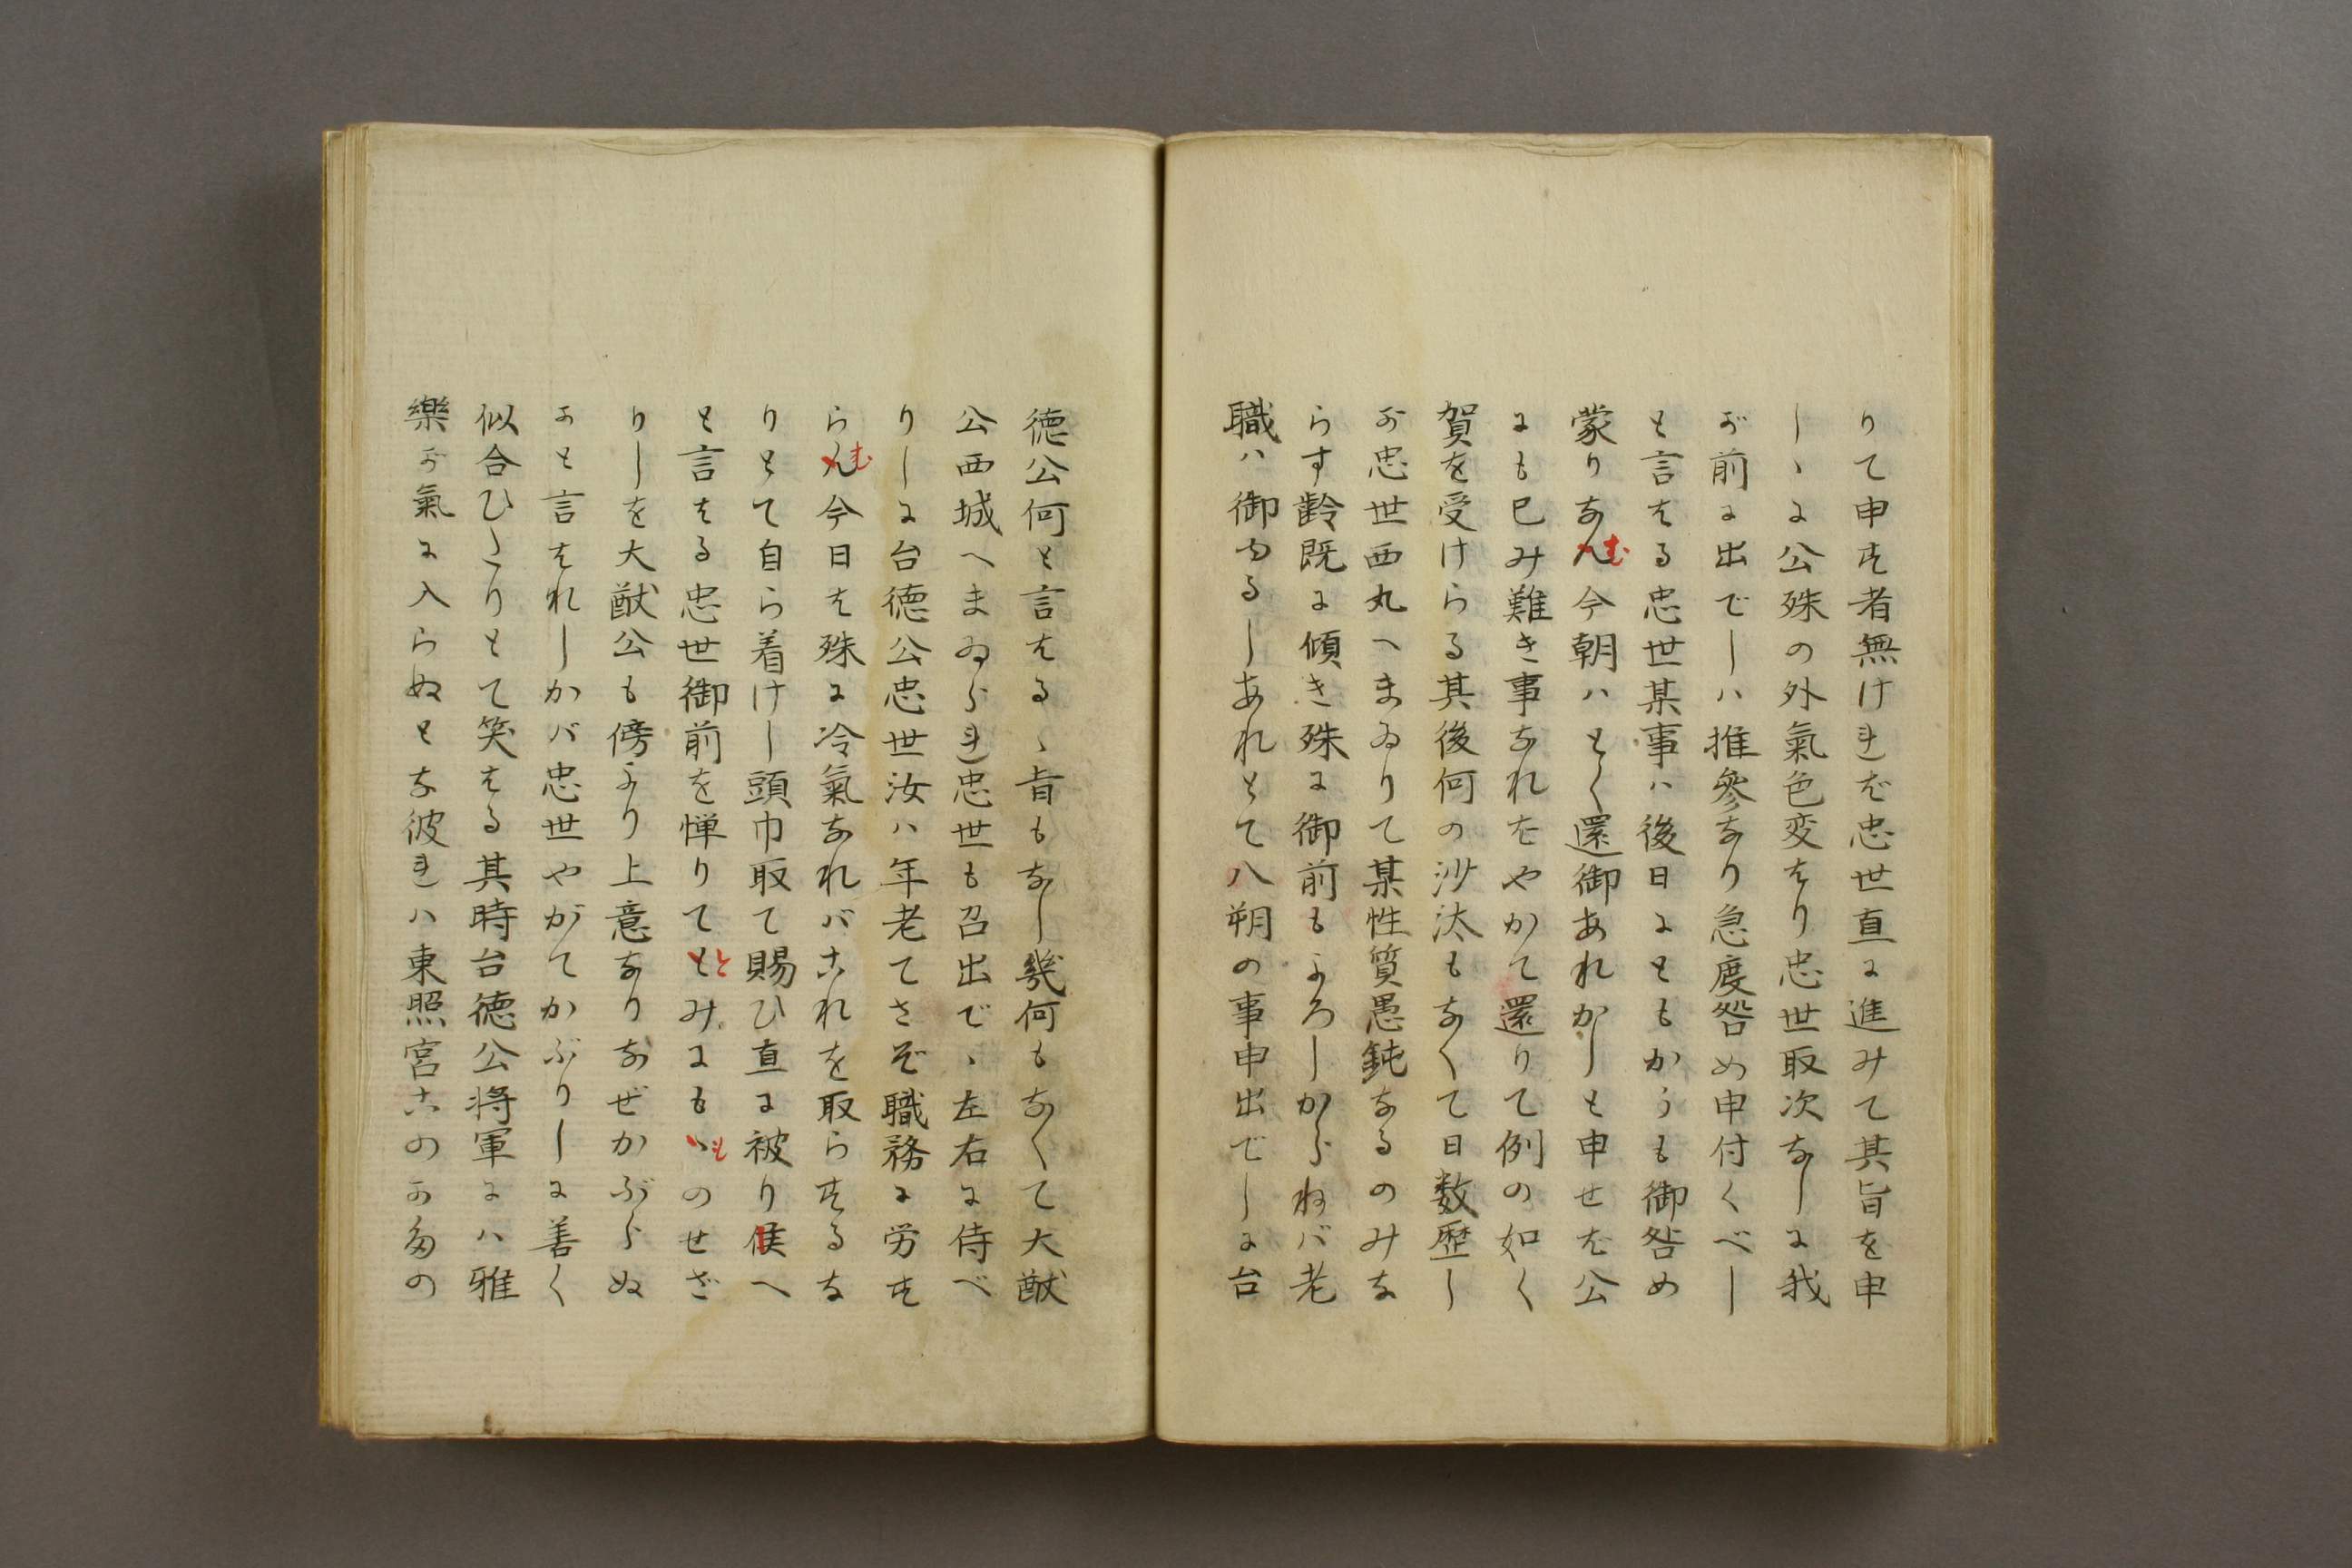 りて申す者無ければ忠世直に進みて其旨を申
しゝに公殊の外氣色変はり忠世取次なしに我
が前に出でしハ推參なり急度咎め申付くべし
と言はる忠世某事ハ後日にともかうも御咎め
蒙りなんむ今朝ハとく還御あれかしと申せば公
にも已み難き事なれはやかて還りて例の如く
賀を受けらる其後何の沙汰もなくて日数歴し
が忠世西丸へまゐりて某性質愚鈍なるのみな
らす齢既に傾き殊に御前もよろしからねバ老
職ハ御ゆるしあれとて八朔の事申出でしに台
徳公何と言はるゝ旨もなし幾何もなくて大猷
公西城へまゐられ忠世も召出でゝ左右に侍べ
りしに台徳公忠世汝ハ年老てさぞ職務に労す
らんむ今日は殊に冷氣なれバこれを取らするな
りとて自ら着けし頭巾取て賜ひ直に被り候へ
と言はる忠世御前を憚りてととみにもゝものせざ
りしを大猷公も傍より上意なりなぜかぶらぬ
かと言はれしかバ忠世やがてかぶりしに善く
似合ひたりとて笑はる其時台徳公将軍にハ雅
樂が氣に入らぬとな彼れハ東照宮このかたの